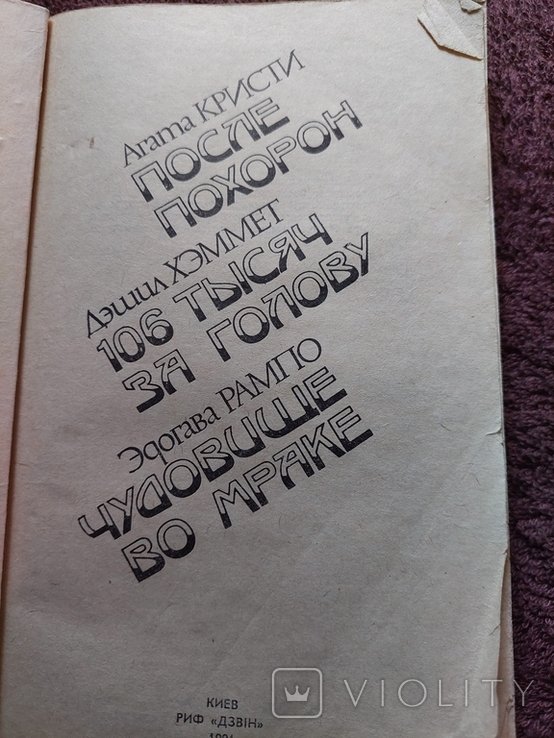 Агата КРИСТИ
ПОСЛЕ
ПОХОРОН
Дэшил ХЭММЕТ
106 ТЫСЯЧ
ЗА ГОЛОВУ
Эдогава РАМПО
ЧУДОВИЩЕ
ВО МРАКЕ
КИЕВ
РИФ «ДЗВІН»
VIOLITY